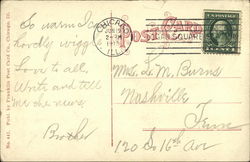 So warm I can
hardly wiggle
Love to all
Write and tell
me the news.
Brother
CHICAGO
JUN 15
ILL.
POST CARD
SQUARE
Mrs. L. M. Burns
Nashville
Tenn
120 S 16th Ave
No. 441. Pub. by Franklin Post Card Co., Chicago, Ill.